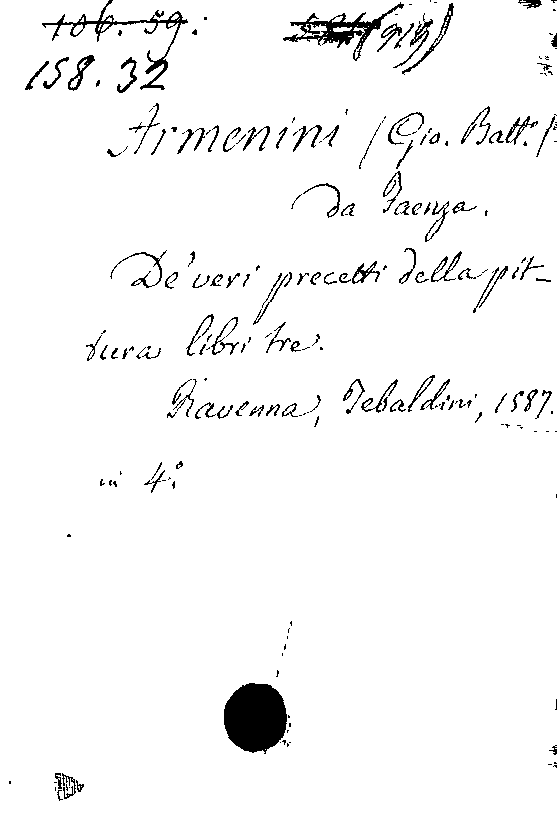 106. 59.
158. 32
Armenini (Gio. Batt.ª)
da Faenza.
De' veri precetti della pit-
tura libri tre.
Ravenna, Tebaldini, 1587.
in 4.º